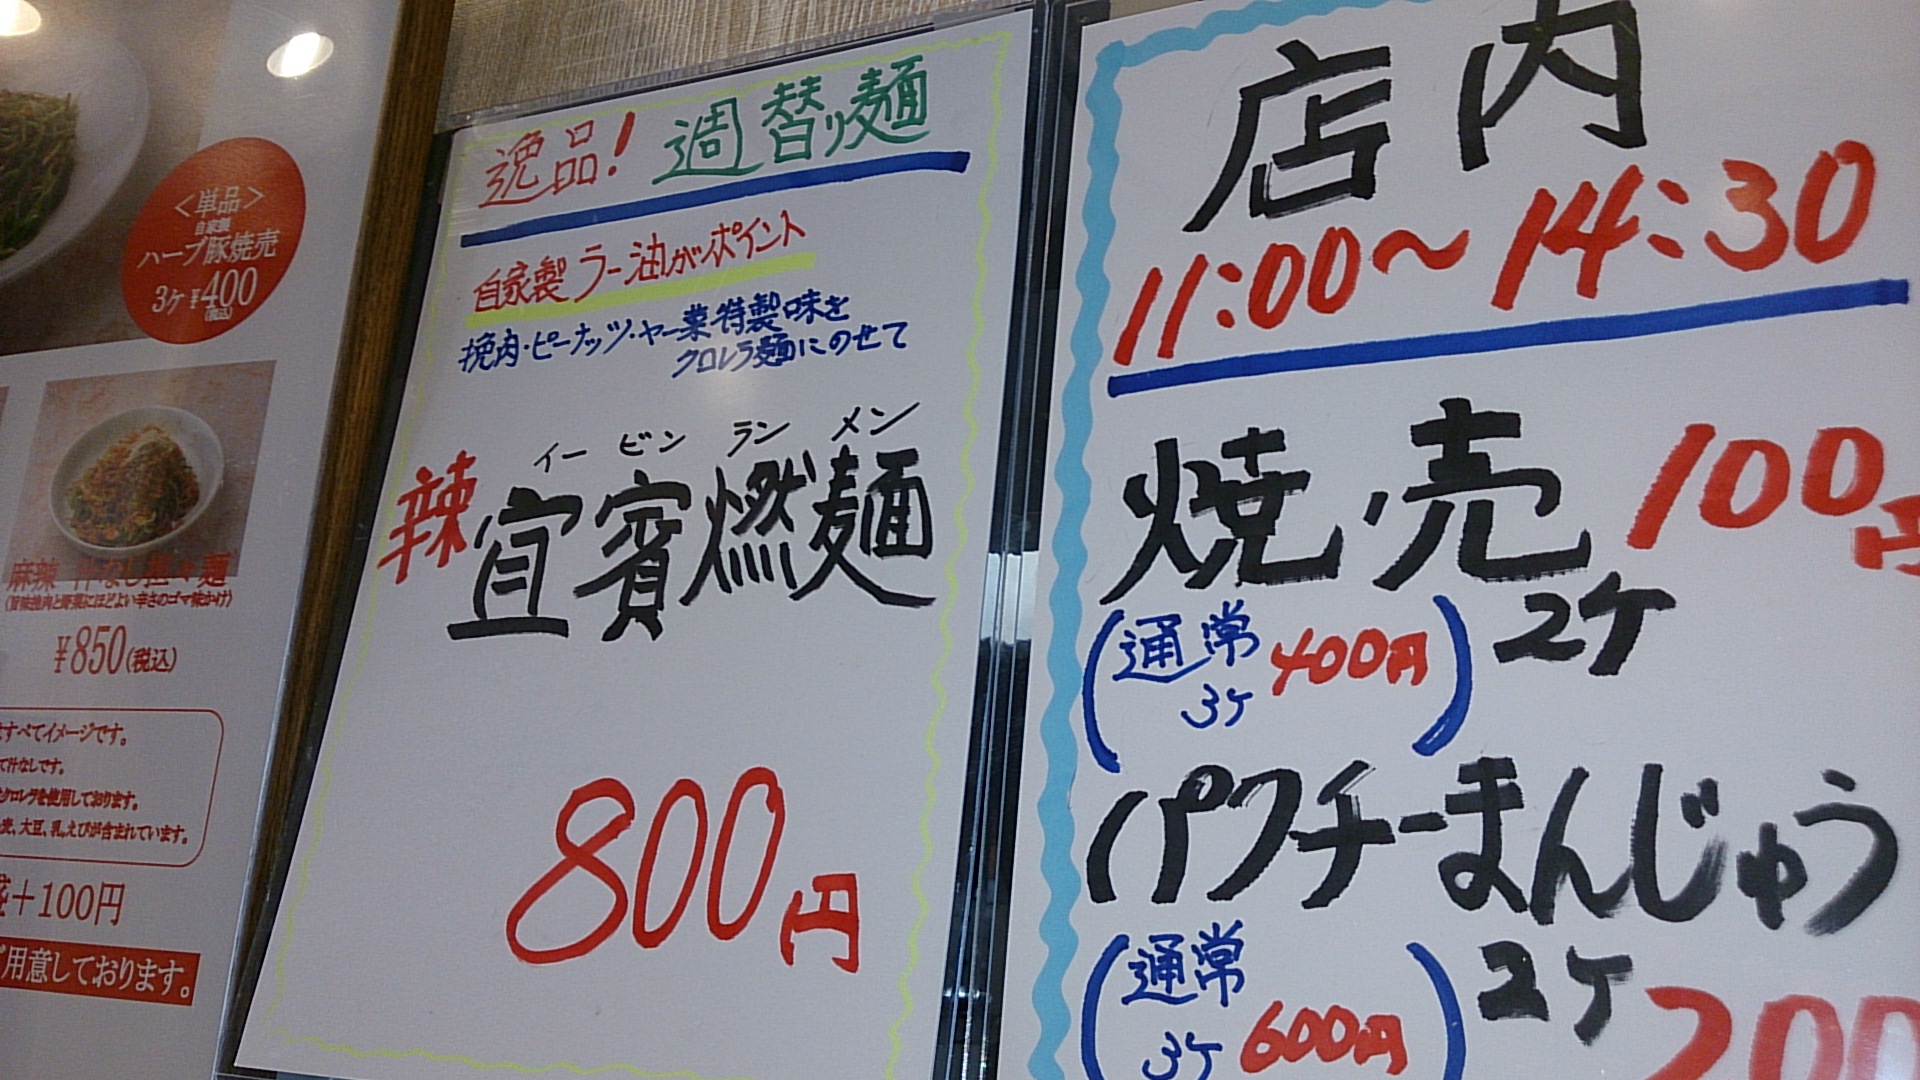 ＜単品＞
自家製
ハーブ豚焼売
3ヶ ¥400
(税込)
麻辣 汁なし担々麺
(旨味挽肉と野菜にほどよい辛さのゴマ味かけ)
¥850(税込)
すべてイメージです。
て汁なしです。
クロレラを使用しております。
大豆、乳、えびが含まれています。
＋100円
用意しております。
逸品! 週替り麺
自家製 ラー油がポイント
挽肉・ピーナッツ・ヤー菜・特製味を
クロレラ麺にのせて
イー ビン ラン メン
辣 宜賓燃麺
800円
店内
11:00～14:30
焼売 100円
2ケ
(通常 3ケ 400円)
パクチーまんじゅう
2ケ 200
(通常 3ケ 600円)